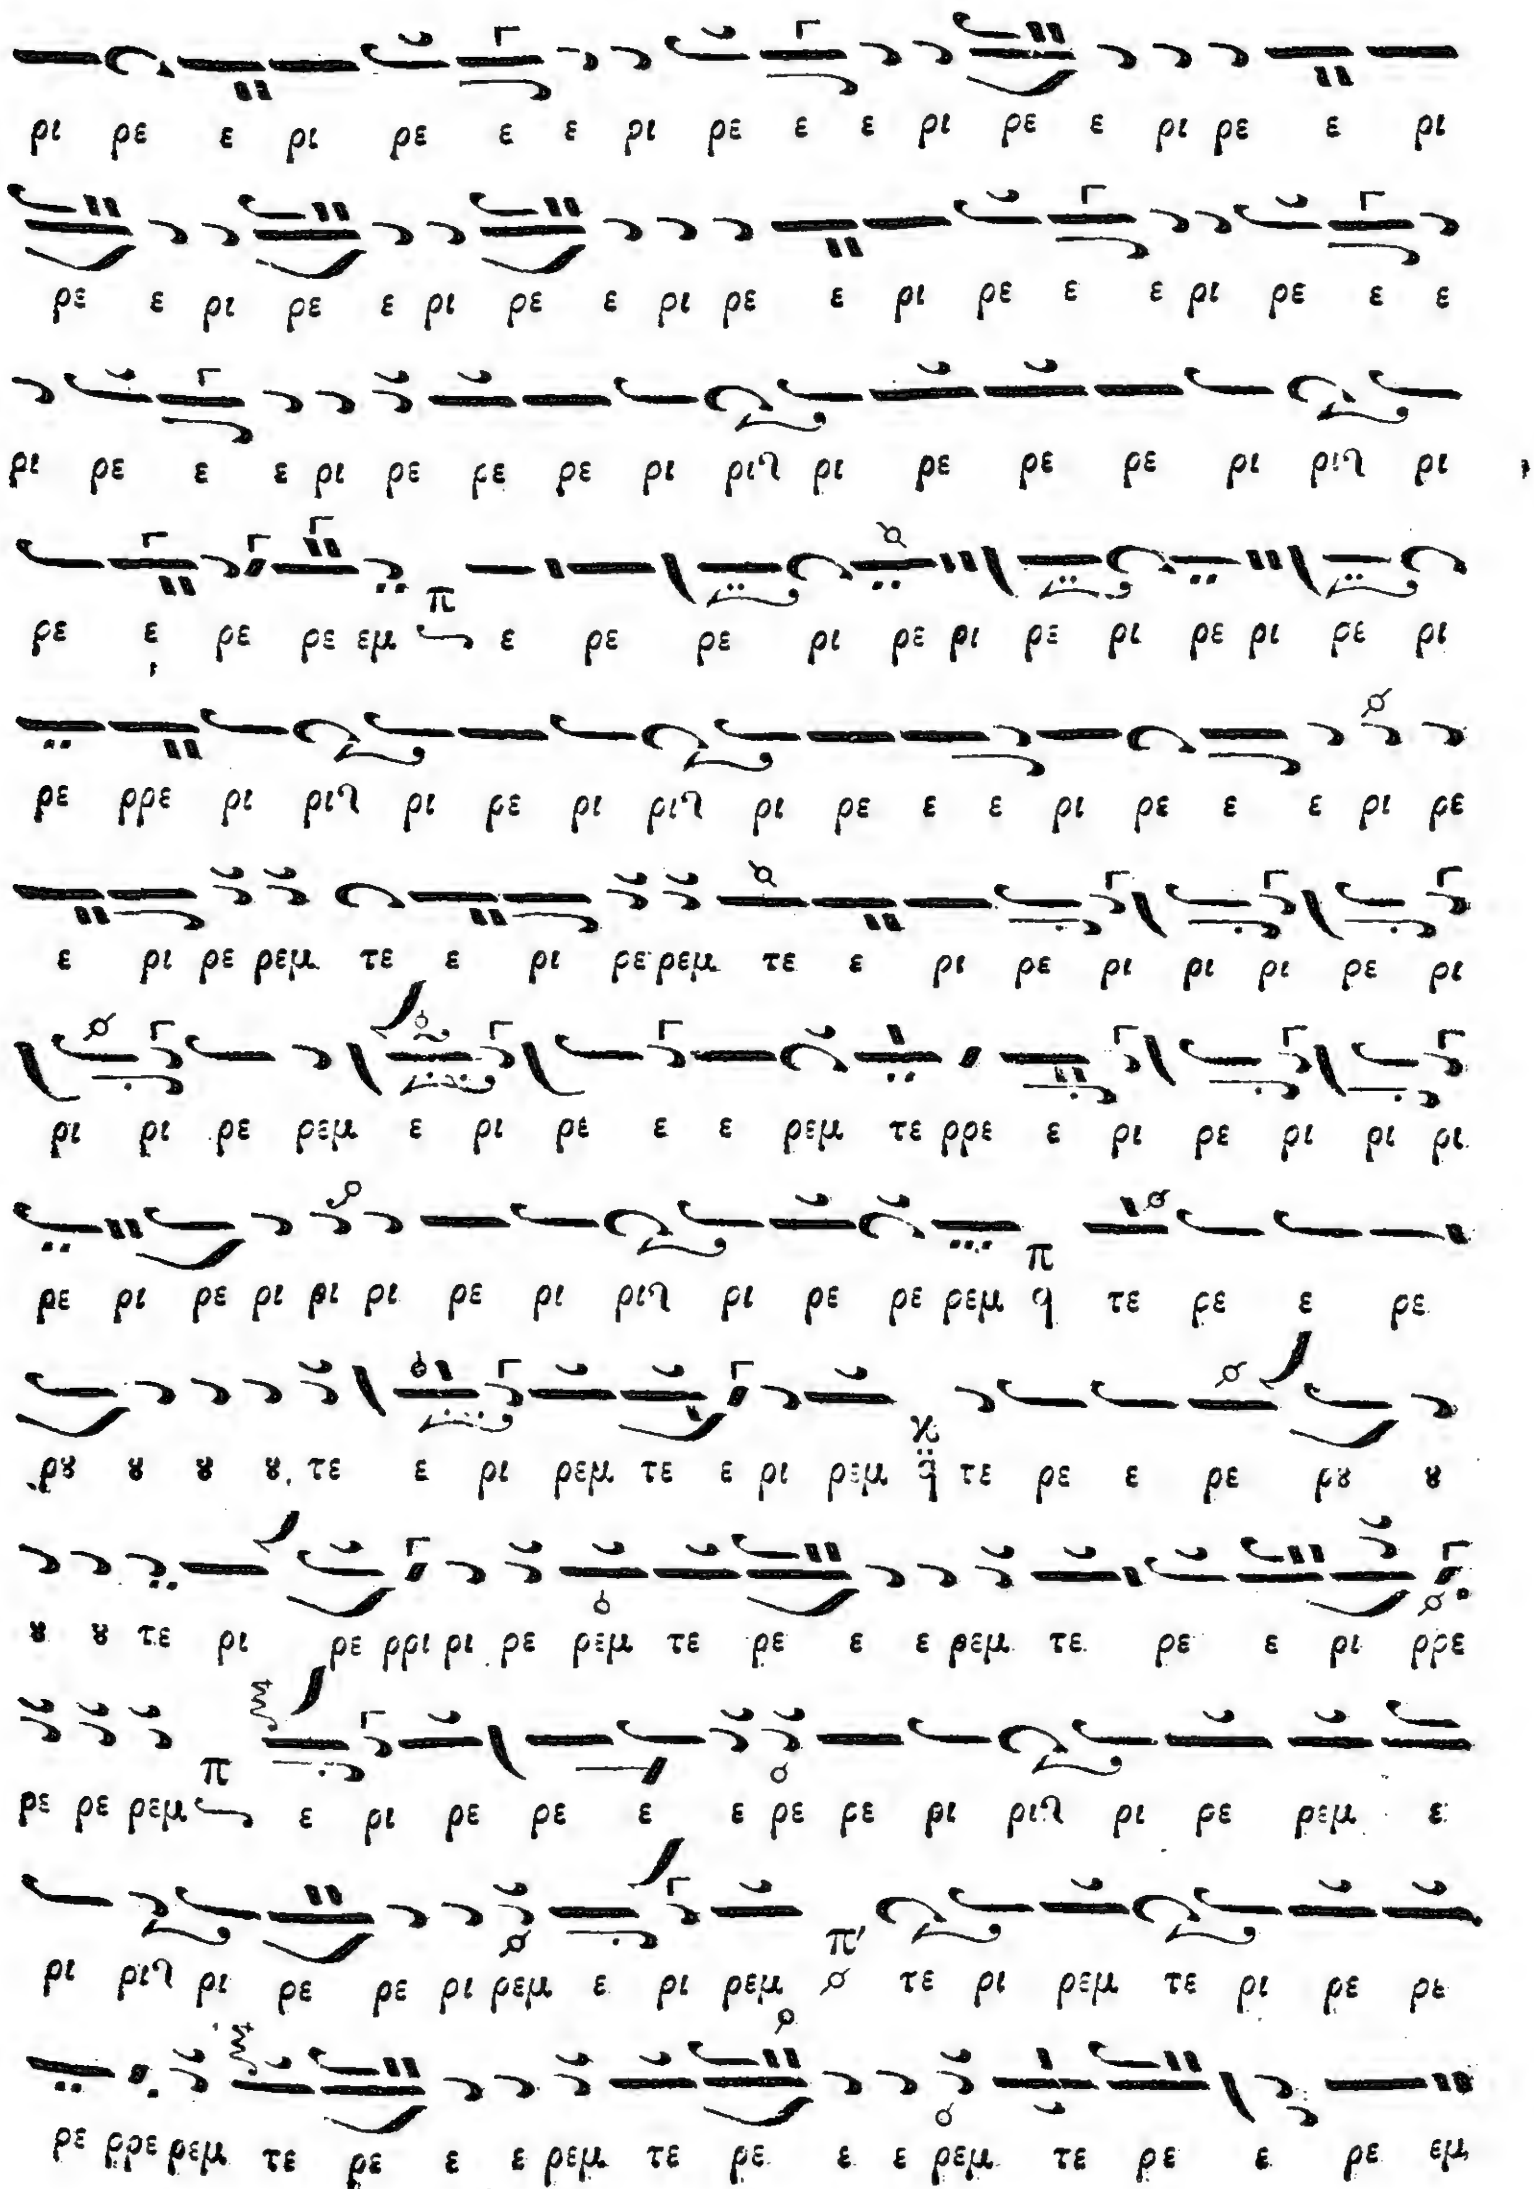 ρι ρε ε ρι ρε ε ε ρι ρε ε ε ρι ρε ε ρι ρε ε ρι
ρε ε ρι ρε ε ρι ρε ε ρι ρε ε ρι ρε ε ε ρι ρε ε ε
ρι ρε ε ε ρι ρε ρε ρε ρι ριϟ ρι ρε ρε ρε ρι ριϟ ρι
π
ρε ε ρε ρε εμ ε ρε ρε ρι ρε ρι ρε ρι ρε ρι ρε ρι
ρε ρρε ρι ριϟ ρι ρε ρι ριϟ ρι ρε ε ε ρι ρε ε ε ρι ρε
ε ρι ρε ρεμ τε ε ρι ρε ρεμ τε ε ρι ρε ρι ρι ρι ρε ρι
ρι ρι ρε ρεμ ε ρι ρε ε ε ρεμ τε ρρε ε ρι ρε ρι ρι ρι
π
ρε ρι ρε ρι ρι ρι ρε ρι ριϟ ρι ρε ρε ρεμ q τε ρε ε ρε
ϰ
ρȣ ȣ ȣ ȣ, τε ε ρι ρεμ τε ε ρι ρεμ q̈ τε ρε ε ρε ρȣ ȣ
ȣ ȣ τε ρι ρε ρρι ρι ρε ρεμ τε ρε ε ε ρεμ τε ρε ε ρι ρρε
π
ρε ρε ρεμ ε ρι ρε ρε ε ε ρε ρε ρι ριϟ ρι ρε ρεμ ε
π'
ρι ριϟ ρι ρε ρε ρι ρεμ ε ρι ρεμ τε ρι ρεμ τε ρι ρε ρε
ρε ρρε ρεμ τε ρε ε ε ρεμ τε ρε ε ε ρεμ τε ρε ε ρε εμ